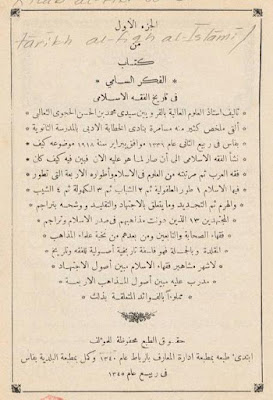 Kitāb al-Fikr
tārīkh al-fiqh al-Islāmī
الجزء الأول
من
كتاب
الفكر السامي
في تاريخ الفقه الاسلامي
تأليف استاذ العلوم العالية بالقرويين سيدي محمد بن الحسن الحجوي الثعالبي
ألقى ملخص كثير منه مسامرة بنادي الخطابة الأدبي بالمدرسة الثانوية
بفاس في ربيع الثاني عام ١٣٣٦ موافق فبراير سنة ١٩١٨ موضوعه كيف
نشأ الفقه الاسلامي الى ان صار لما هو عليه الان فبين فيه كيف كان
فقه العرب ثم مرتبته من العلوم في الاسلام وأطواره الأربعة التي تطور
فيها الاسلام ١ طور الطفولية ثم ٢ الشباب ثم ٣ الكهولة ثم ٤ الشيب
والهرم ثم التجديد وما يتعلق بالاجتهاد والتقليد ووشحه بتراجم
المجتهدين ١٣ الذين دونت مذاهبهم في صدر الاسلام وتراجم
فقهاء الصحابة والتابعين ومن بعدهم من نخبة علماء المذاهب
المقلدة وبالجملة فهو فلسفة تاريخية أصولية للفقه وتاريخ
لأشهر مشاهير فقهاء الاسلام مبين أصول الاجتهاد
مدرب عليه مبين أصول المذاهب الأربعة
مملوءاً بالفوائد المتعلقة بذلك
حقوق الطبع محفوظة للمؤلف
ابتدئ طبعه بمطبعة ادارة المعارف بالرباط عام ١٣٤٠ وكمل بمطبعة البلدية بفاس
في ربيع عام ١٣٤٥